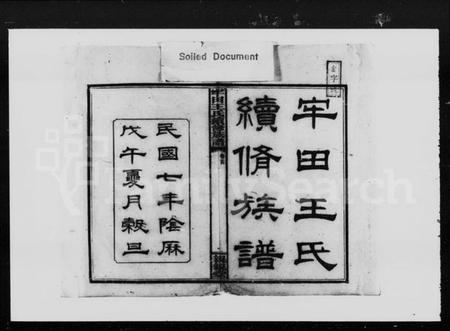 Soiled Document
牢田王氏
續脩族譜
民國七年陰厤
戊午夏月榖旦